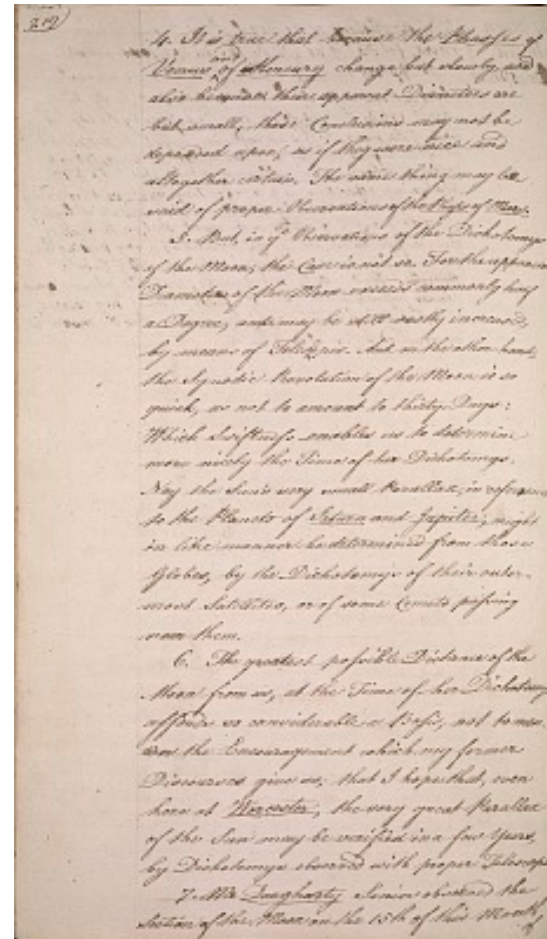 219
4. It is true that because the Phases of
Venus and of Mercury change but slowly, and
also because their apparent Diameters are
but small, those Conclusions may not be
depended upon, as if they were nice and
altogether certain. The same thing may be
said of proper Observations of the Phases of Mars.
5. But, in ye Observations of the Dichotomys
of the Moon, the Case is not so. For the apparent
Diameter of the Moon exceeds commonly half
a Degree, and may be vastly increased,
by means of Telescopes. And on the other hand,
the Synodic Revolution of the Moon is so
quick, as not to amount to thirty Days:
Which Swiftness enables us to determine
more nicely the Time of her Dichotomys.
Nay the Sun's very small Parallax, in reference
to the Planets of Saturn and Jupiter, might
in like manner be determined from those
Globes, by the Dichotomys of their outer-
most Satellites, or of some Comets passing
near them.
6. The greatest possible Distance of the
Moon from us, at the Time of her Dichotomy
affords so considerable a Basis, not to men-
tion the Encouragement which my former
Discourses give us, that I hope that, even
here at Worcester, the very great Parallax
of the Sun may be verified in a few Years,
by Dichotomys observed with proper Telescopes
7. Mr. Dougharty Senior observed the
Section of the Moon on the 15th of this Month